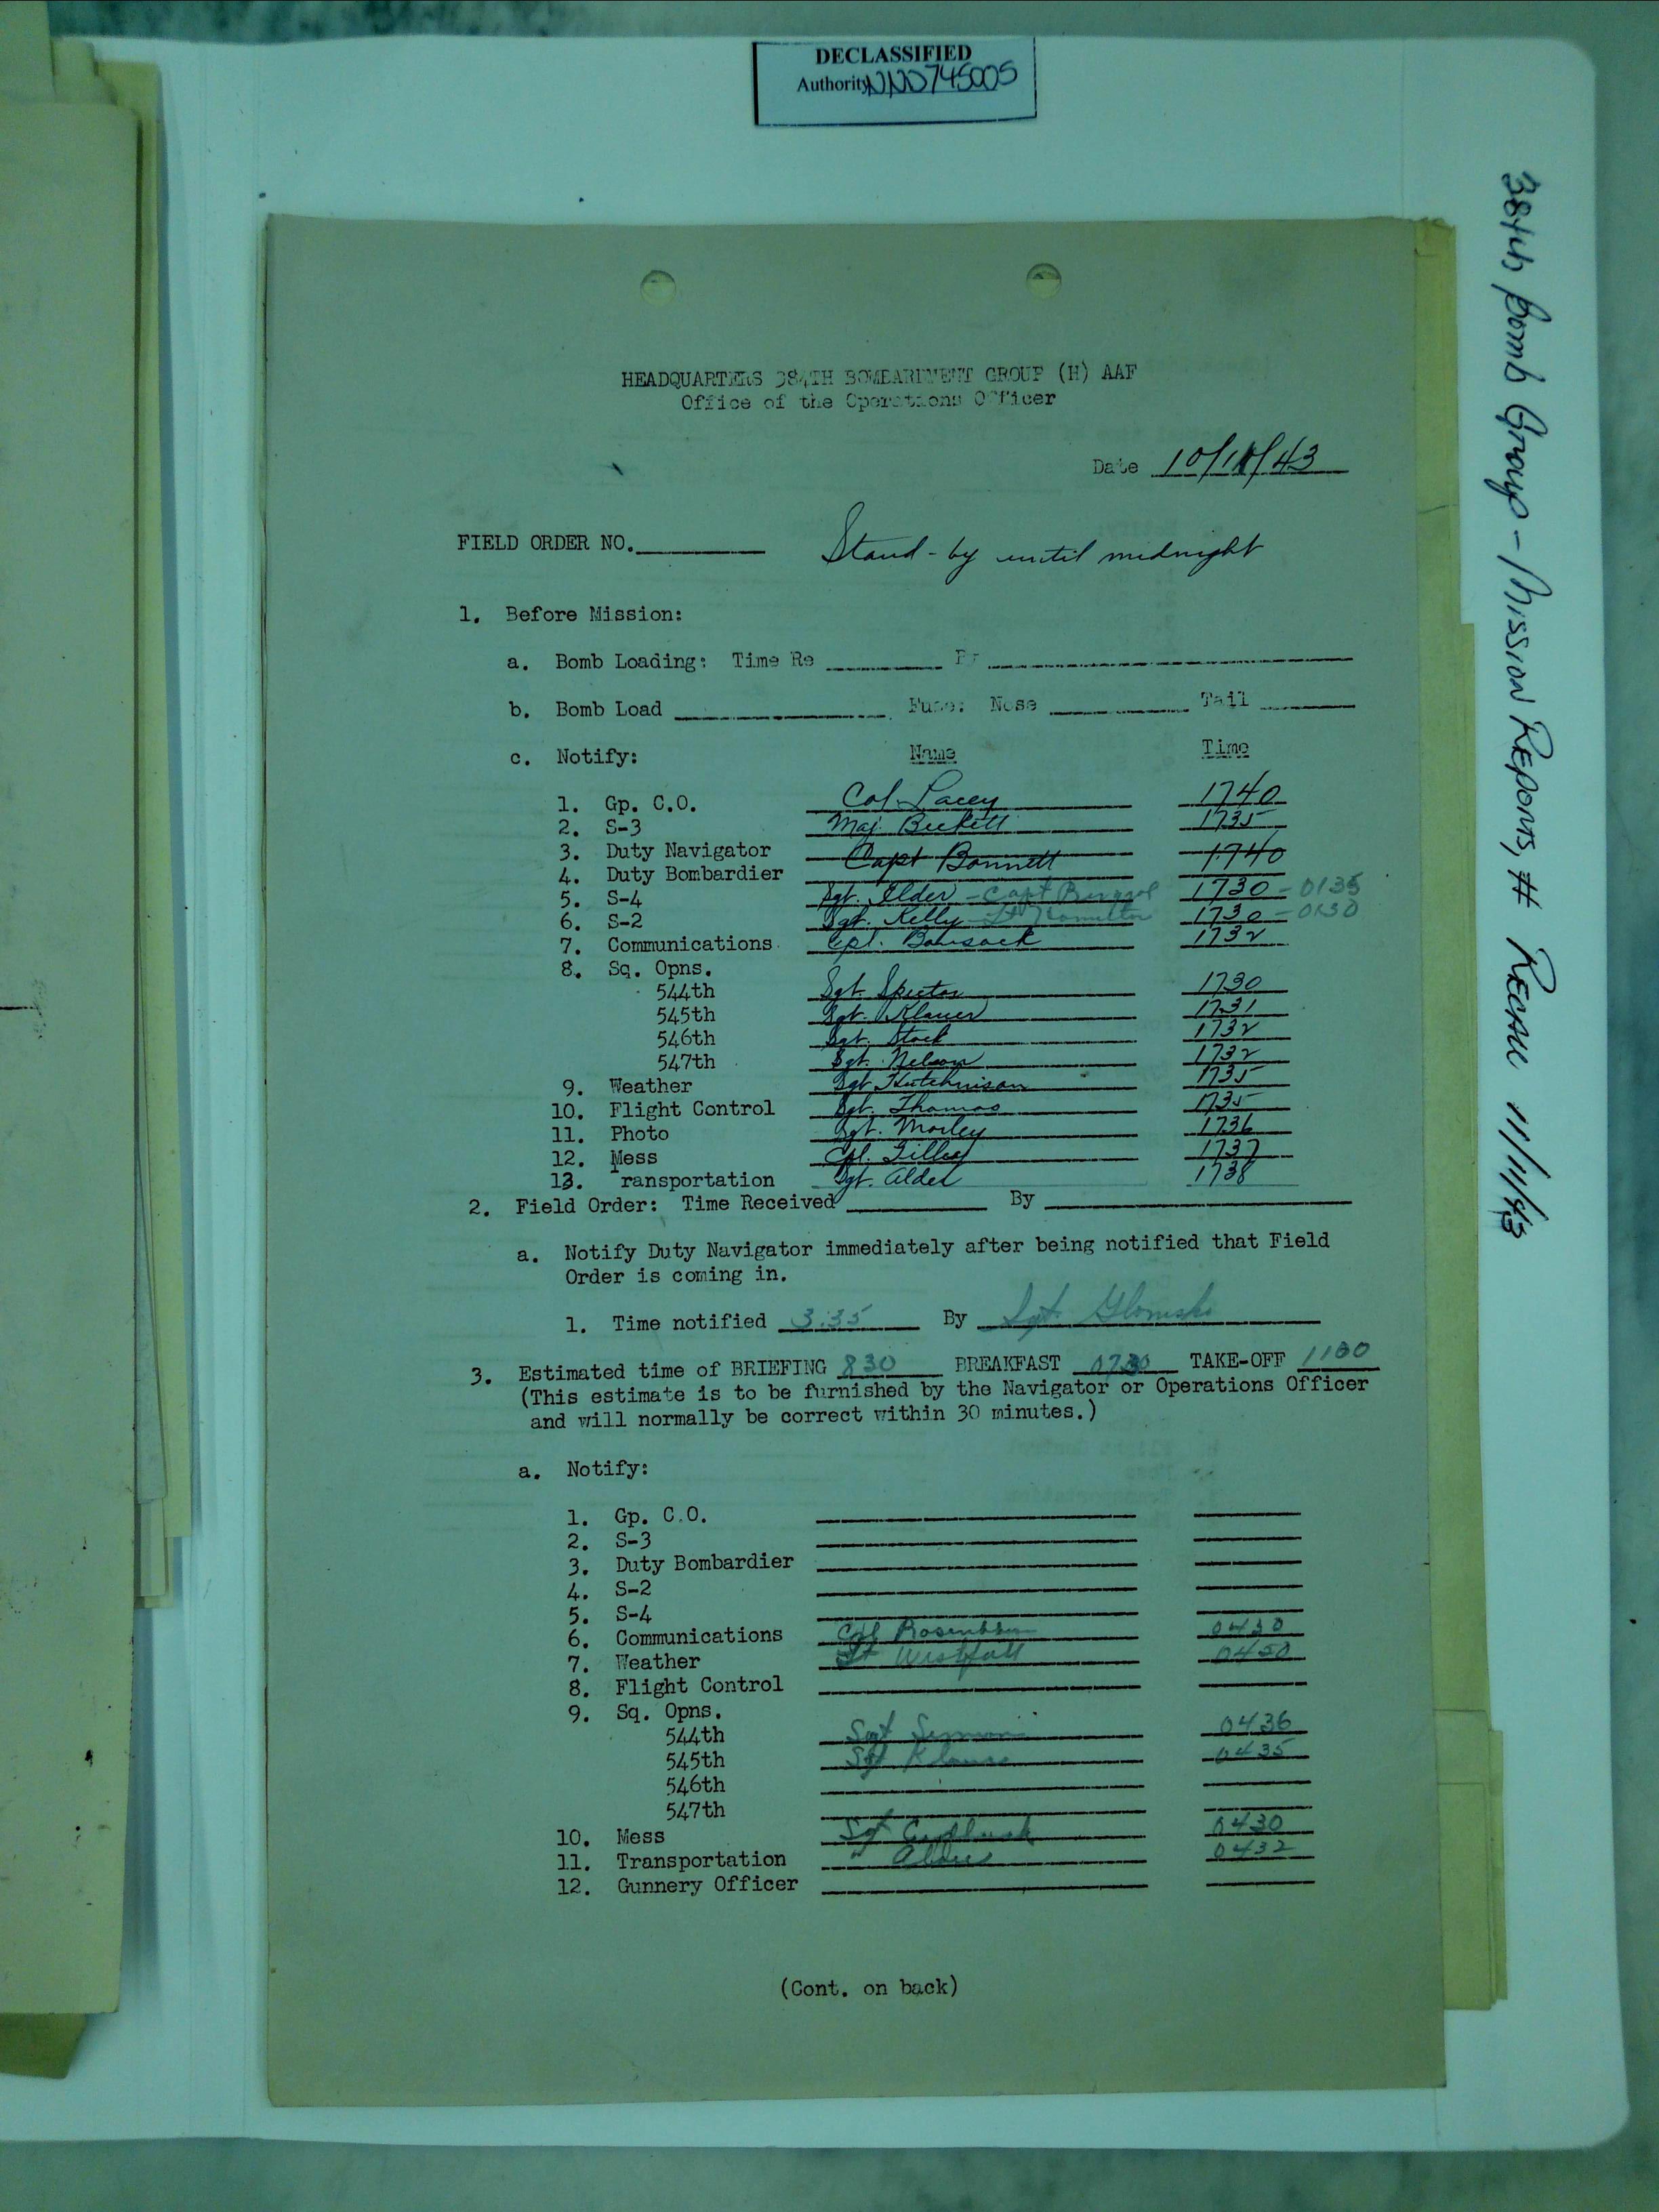 DECLASSIFIED
Authority NND745005
384th Bomb Group - Mission Reports, # Recall 11/11/43
HEADQUARTERS 384TH BOMBARDMENT GROUP (H) AAF
Office of the Operations Officer
Date 10/11/43
FIELD ORDER NO. Stand-by until midnight
1. Before Mission:
a. Bomb Loading: Time Re By
b. Bomb Load Fuse: Nose Tail
c. Notify: Name Time
1. Gp. C.O. Col. Lacey 1740
2. S-3 Maj. Beckett 1735
3. Duty Navigator Capt Bonnett 1740
4. Duty Bombardier
5. S-4 Sgt. Elder - Capt 1730 - 0135
6. S-2 Sgt. Kelly - Lt Hamilton 1730 - 0130
7. Communications Cpl. 1732
8. Sq. Opns.
544th Sgt. Spector 1730
545th Sgt. Klauer 1731
546th Sgt. Stock 1732
547th Sgt. Nelson 1732
9. Weather Sgt Hutchinson 1735
10. Flight Control Sgt. Thomas 1735
11. Photo Sgt. Morley 1736
12. Mess Cpl. 1737
13. Transportation Sgt. Alder 1738
2. Field Order: Time Received By
a. Notify Duty Navigator immediately after being notified that Field
Order is coming in.
1. Time notified 3:35 By Sgt.
3. Estimated time of BRIEFING 830 BREAKFAST 0730 TAKE-OFF 1100
(This estimate is to be furnished by the Navigator or Operations Officer
and will normally be correct within 30 minutes.)
a. Notify:
1. Gp. C.O.
2. S-3
3. Duty Bombardier
4. S-2
5. S-4
6. Communications Cpl 0430
7. Weather Lt Westfall 0450
8. Flight Control
9. Sq. Opns.
544th Sgt 0436
545th Sgt 0435
546th
547th
10. Mess Sgt 0430
11. Transportation " 0432
12. Gunnery Officer
(Cont. on back)